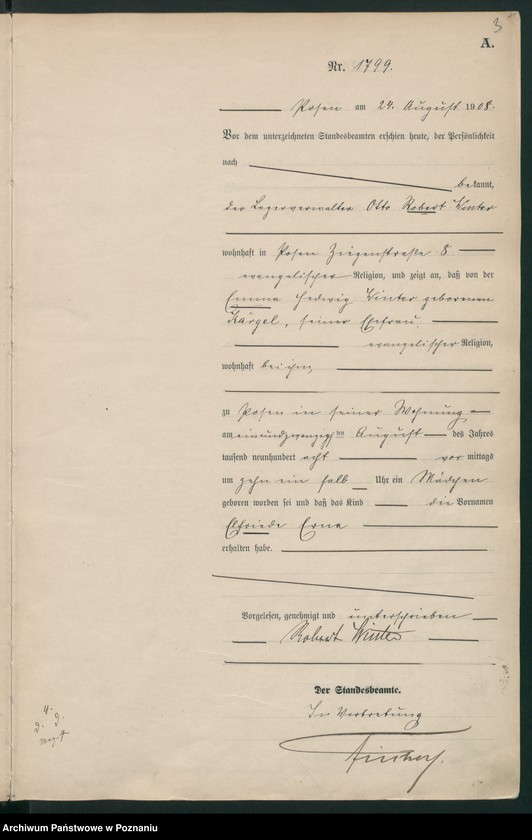 3
A.
Nr. 1799.
Posen am 24. August 1908.
Vor dem unterzeichneten Standesbeamten erschien heute, der Persönlichkeit
nach
bekannt,
der Lagerverwalter Otto Robert Winter
wohnhaft in Posen Ziegenstraße 8
evangelischer Religion, und zeigt an, daß von der
Emma Hedwig Winter geborenen
Kärgel, seiner Ehefrau
evangelischer Religion,
wohnhaft bei ihm,
zu Posen in seiner Wohnung
am einundzwanzigsten August des Jahres
tausend neunhundert acht vormittags
um zehn ein halb Uhr ein Mädchen
geboren worden sei und daß das Kind die Vornamen
Elfriede Erna
erhalten habe.
Vorgelesen, genehmigt und unterschrieben
Robert Winter
Der Standesbeamte.
In Vertretung
Archiwum Państwowe w Poznaniu